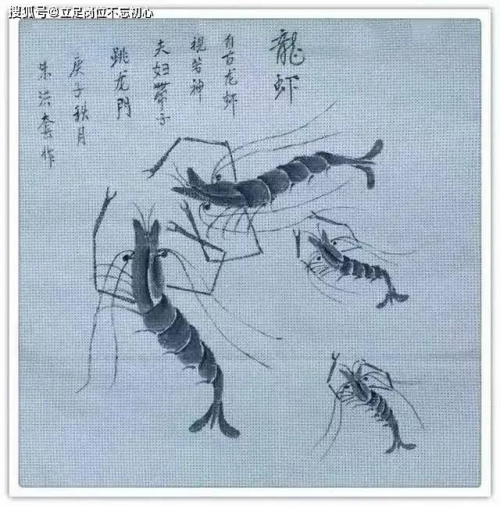 搜狐号@立足岗位不忘初心
龍虾
自古龙虾
视若神
夫妇带子
跳龙門
庚子秋月
朱洪套作